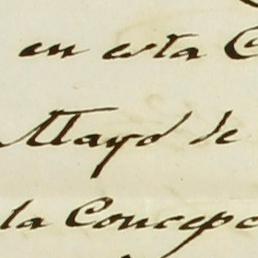 en esta C
Mayo de
la Concepc